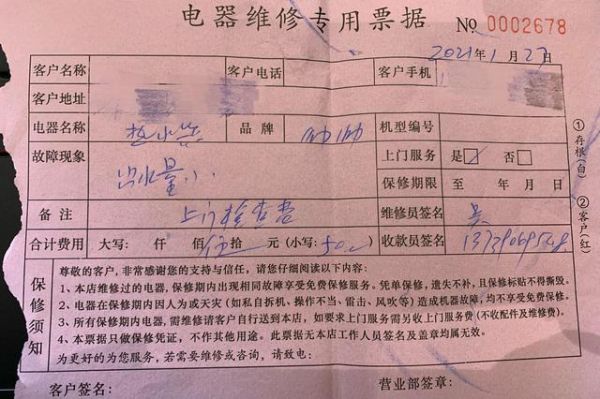 电器维修专用票据 № 0002678
2021年1月27日
客户名称 客户电话 客户手机
客户地址
电器名称 热水器 品牌 帅帅 机型编号
故障现象 出水量小 上门服务 是☑ 否□
保修期限 至 年 月 日
备注 上门检查费 维修员签名 吴
合计费用 大写: 仟 佰 伍拾 元 (小写: 50元) 收款员签名
①存根(白) ②客户(红)
保修须知
尊敬的客户,非常感谢您的支持与信任,请您仔细阅读以下内容:
1、本店维修过的电器,保修期内出现相同故障享受免费保修服务。凭单保修,遗失不补,且保修标贴不得撕毁。
2、电器在保修期内因人为或天灾(如私自拆机、操作不当、雷击、风吹等)造成机器故障,均不享受免费保修。
3、所有保修期内电器,需维修请客户自行送到本店,如要求上门服务需另收上门服务费(不收配件及维修费)。
4、本票据只做保修凭证,不作其他用途。此票据无本店工作人员签名及盖章均属无效。
为更好的为您服务,若需要维修或咨询,请致电:
客户签名: 营业部签章: